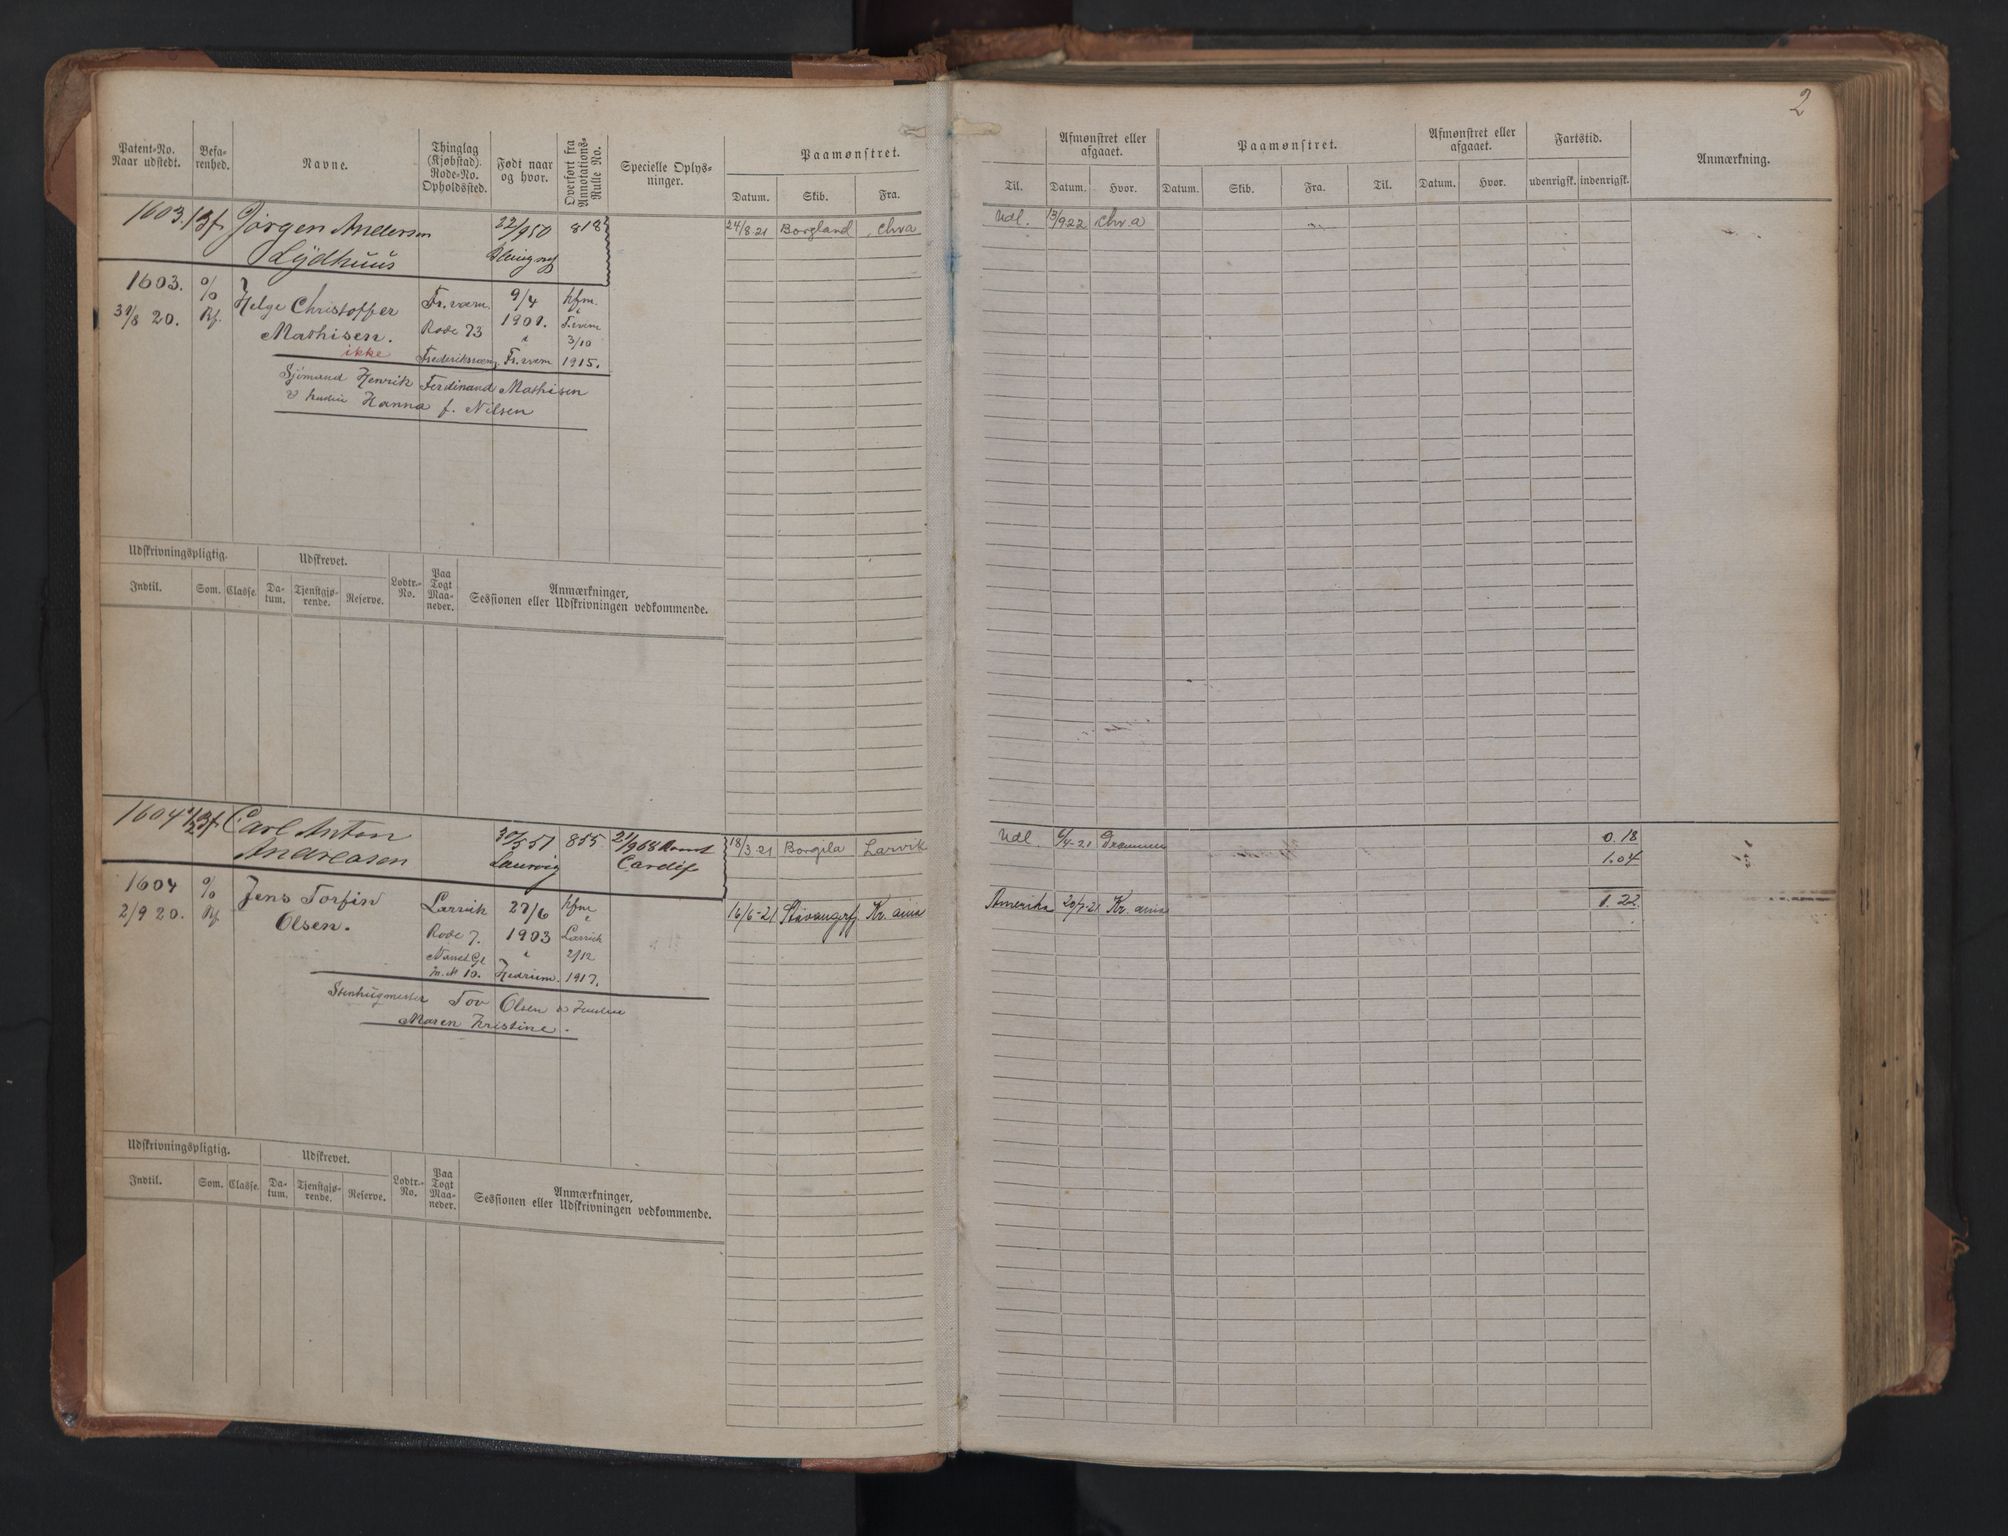 2
Patent-No.
Naar udstedt.
Befa-
renhed.
Navne.
Thinglag
(Kjøbstad).
Rode-No.
Opholdssted.
Født naar
og hvor.
Overført fra
Annotations-
Rulle No.
Specielle Oplys-
ninger.
Paamønstret.
Datum. Skib. Fra.
Til.
Afmønstret eller
afgaaet.
Datum. Hvor.
Paamønstret.
Datum. Skib. Fra. Til.
Afmønstret eller
afgaaet.
Datum. Hvor.
Fartstid.
udenrigsk. indenrigsk.
Anmærkning.
1603. Jørgen Andersen 22/9 50 818
Lydhuus
24/8.21 Borgland Chra Udl. 13/9.22 Chr.a
1603. % Helge Christoffer Fr.værn 9/4 hfm.
31/8 20. Rf. Mathisen. Rode 73 1901. Fr.værn
ikke 3/10
Frederiksværn Fr.værn 1915.
Sjømand Henrik Ferdinand Mathisen
& hustru Hanna f. Nilsen
Udskrivningspligtig. Udskrevet.
Indtil. Som. Classe. Da-
tum. Tjenstgjø-
rende. Reserve. Lodtr.-
No. Paa
Togt
Maa-
neder. Anmærkninger,
Sessionen eller Udskrivningen vedkommende.
1604 Carl Anton 30/5 51 855 21/9 68
Andreasen Laurvig Cardif
18/3.21 Borgila Larvik Udl. 6/4-21 Drammen 0.18
1.04
1604 % Jens Torfin Larvik 27/6 hfm
2/9 20. Rf. Olsen. Rode 7. 1903 Larvik
i 2/12
M.N 10. Hedrum. 1917.
16/6-21 Stavangerfj. Kr.ania Amerika 20/7-21 Kr.ania 1.22
Stenhugmester Tov Olsen & Hustru
Maren Kristine.
Udskrivningspligtig. Udskrevet.
Indtil. Som. Classe. Da-
tum. Tjenstgjø-
rende. Reserve. Lodtr.-
No. Paa
Togt
Maa-
neder. Anmærkninger,
Sessionen eller Udskrivningen vedkommende.